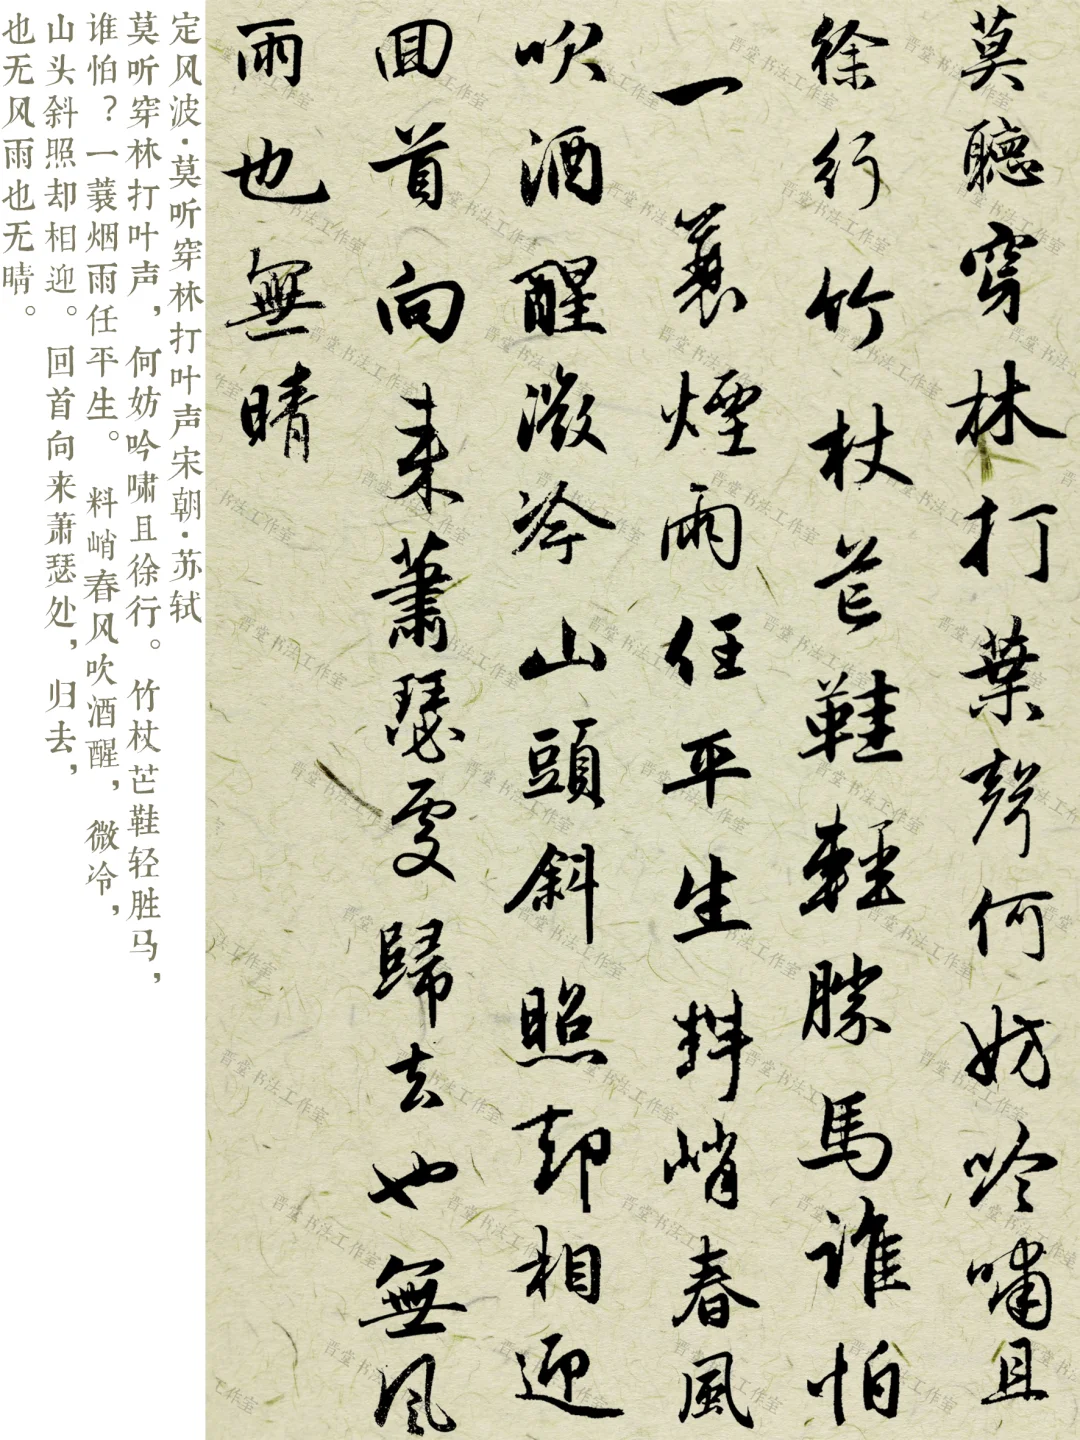 莫聽穿林打葉聲何妨吟嘯且
徐行竹杖芒鞋輕勝馬谁怕
一蓑煙雨任平生料峭春風
吹酒醒微冷山頭斜照却相迎
回首向来蕭瑟處歸去也無風
雨也無晴
定风波·莫听穿林打叶声宋朝·苏轼
莫听穿林打叶声，何妨吟啸且徐行。竹杖芒鞋轻胜马，
谁怕？一蓑烟雨任平生。料峭春风吹酒醒，微冷，
山头斜照却相迎。回首向来萧瑟处，归去，
也无风雨也无晴。
晋堂书法工作室